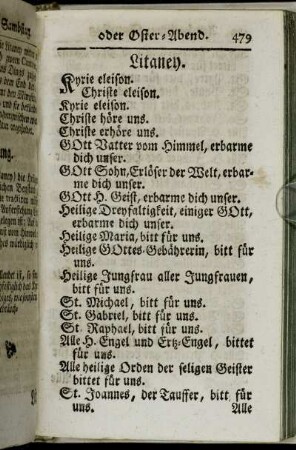 Sambstag
oder Oster-Abend. 479
Litaney.
Kyrie eleison.
Christe eleison.
Kyrie eleison.
Christe höre uns.
Christe erhöre uns.
GOtt Vatter vom Himmel, erbarme
dich unser.
GOtt Sohn, Erlöser der Welt, erbar-
me dich unser.
GOtt H. Geist, erbarme dich unser.
Heilige Dreyfaltigkeit, einiger GOtt,
erbarme dich unser.
Heilige Maria, bitt für uns.
Heilige GOttes-Gebährerin, bitt für
uns.
Heilige Jungfrau aller Jungfrauen,
bitt für uns.
St. Michael, bitt für uns.
St. Gabriel, bitt für uns.
St. Raphael, bitt für uns.
Alle H. Engel und Ertz-Engel, bittet
für uns.
Alle heilige Orden der seligen Geister
bittet für uns.
St. Joannes, der Tauffer, bitt für
uns. Alle